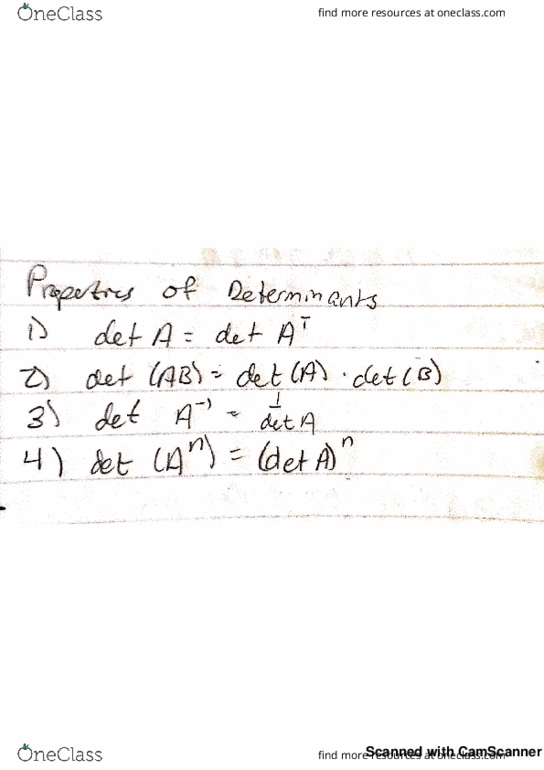 OneClass
find more resources at oneclass.com
Properties of Determinants
1) det A = det Aᵀ
2) det (AB) = det (A) · det (B)
3) det A⁻¹ = 1/det A
4) det (Aⁿ) = (det A)ⁿ
OneClass
find more resources at oneclass.com
Scanned with CamScanner